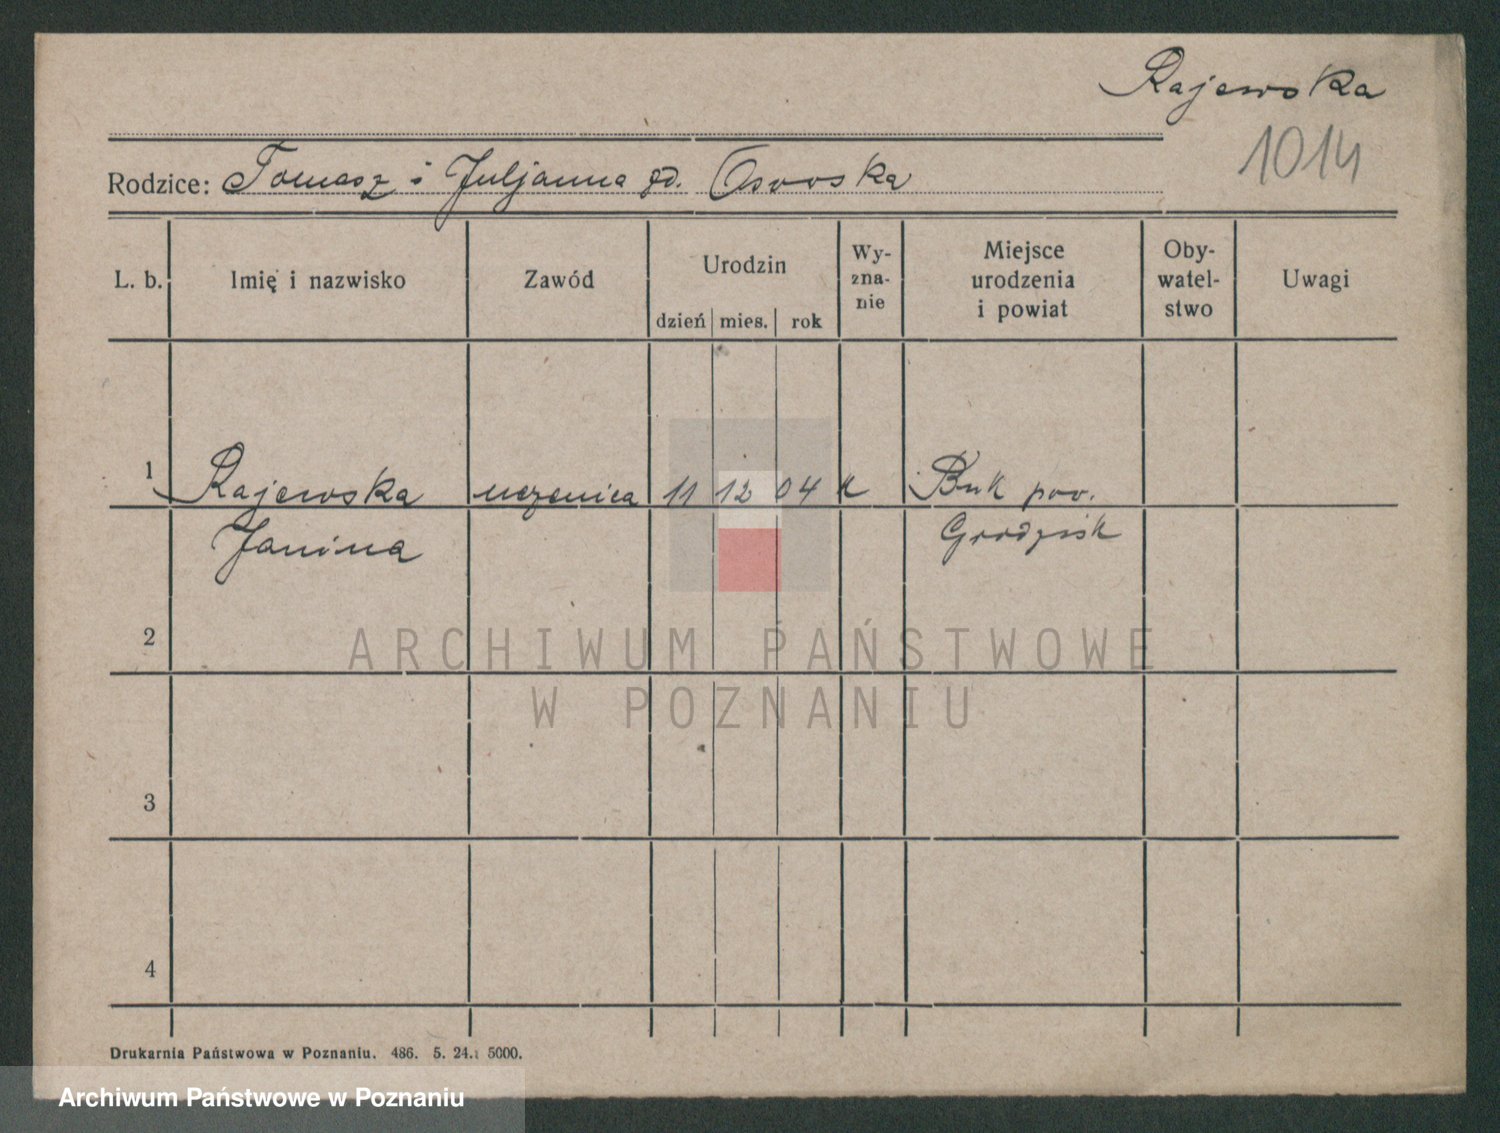 Rajewska
1014
Rodzice: Tomasz i Juljanna zd. Osooska
L. b. Imię i nazwisko Zawód Urodzin dzień mies. rok Wy-zna-nie Miejsce urodzenia i powiat Oby-watel-stwo Uwagi
1 Rajewska uczenica 11 12 04 k Buk pow.
Janina Grodzisk
2
ARCHIWUM PAŃSTWOWE
W POZNANIU
3
4
Drukarnia Państwowa w Poznaniu. 486. 5. 24. 5000.
Archiwum Państwowe w Poznaniu